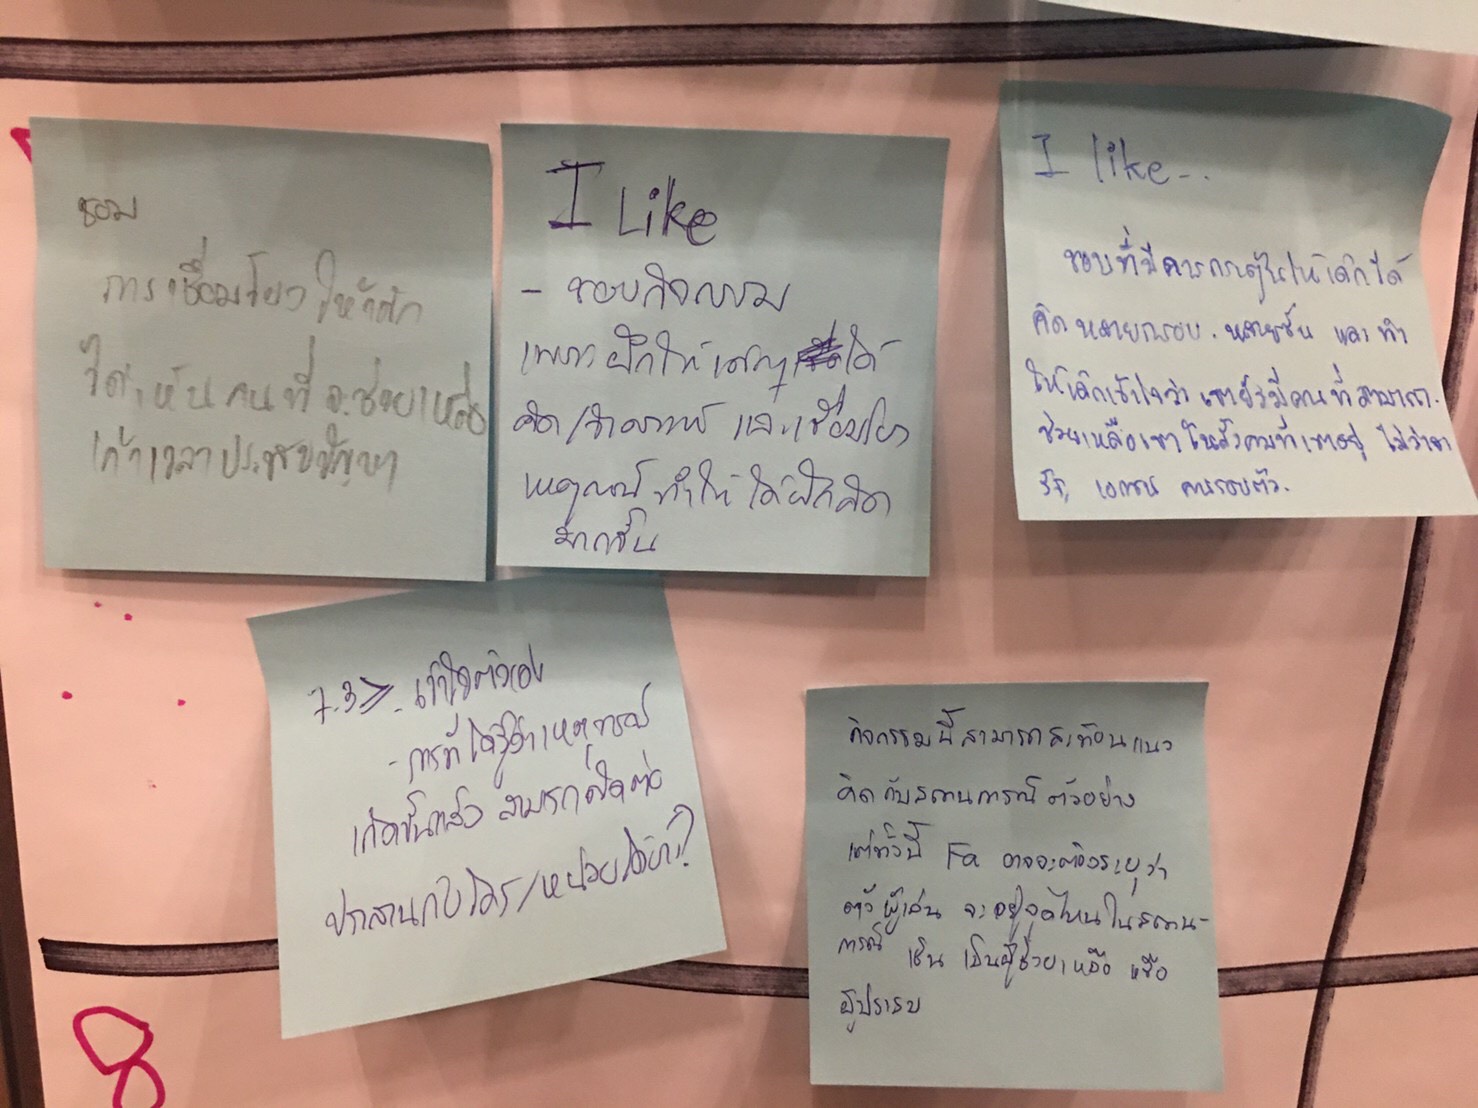 ชอบ
การเชื่อมโยง ให้เด็ก
ได้เห็นคนที่จะช่วยเหลือ
เค้าเวลาประสบปัญหา
I Like
- ชอบกิจกรรม
เพราะฝึกให้ เด็กๆ ได้
คิด/วิเคราะห์ และเชื่อมโยง
เหตุการณ์ ทำให้ ได้ฝึกคิด
มากขึ้น
I like...
ชอบที่มีการกระตุ้นให้เด็กได้
คิด หลายกรอบ. หลายชั้น และ ทำ
ให้เด็กเข้าใจว่า เขายังมีคนที่สามารถ
ช่วยเหลือเขา ในสังคมที่เขาอยู่ ไม่ว่าจะ
รัฐ, เอกชน คนรอบตัว.
7.3 → เข้าใจตัวเอง
- การที่ ได้รู้ว่าเหตุการณ์
เกิดขึ้นแล้ว สามารถติดต่อ
ประสานกับใคร/หน่วยใดบ้าง?
กิจกรรมนี้สามารถสะท้อนแนว
คิด กับสถานการณ์ ตัวอย่าง
แต่ทั้งนี้ Fa อาจจะต้องระบุว่า
ตัวผู้เล่น จะอยู่จุดไหนในสถาน-
การณ์ เช่น เป็นผู้ช่วยเหลือ หรือ
ผู้ประสบ
8